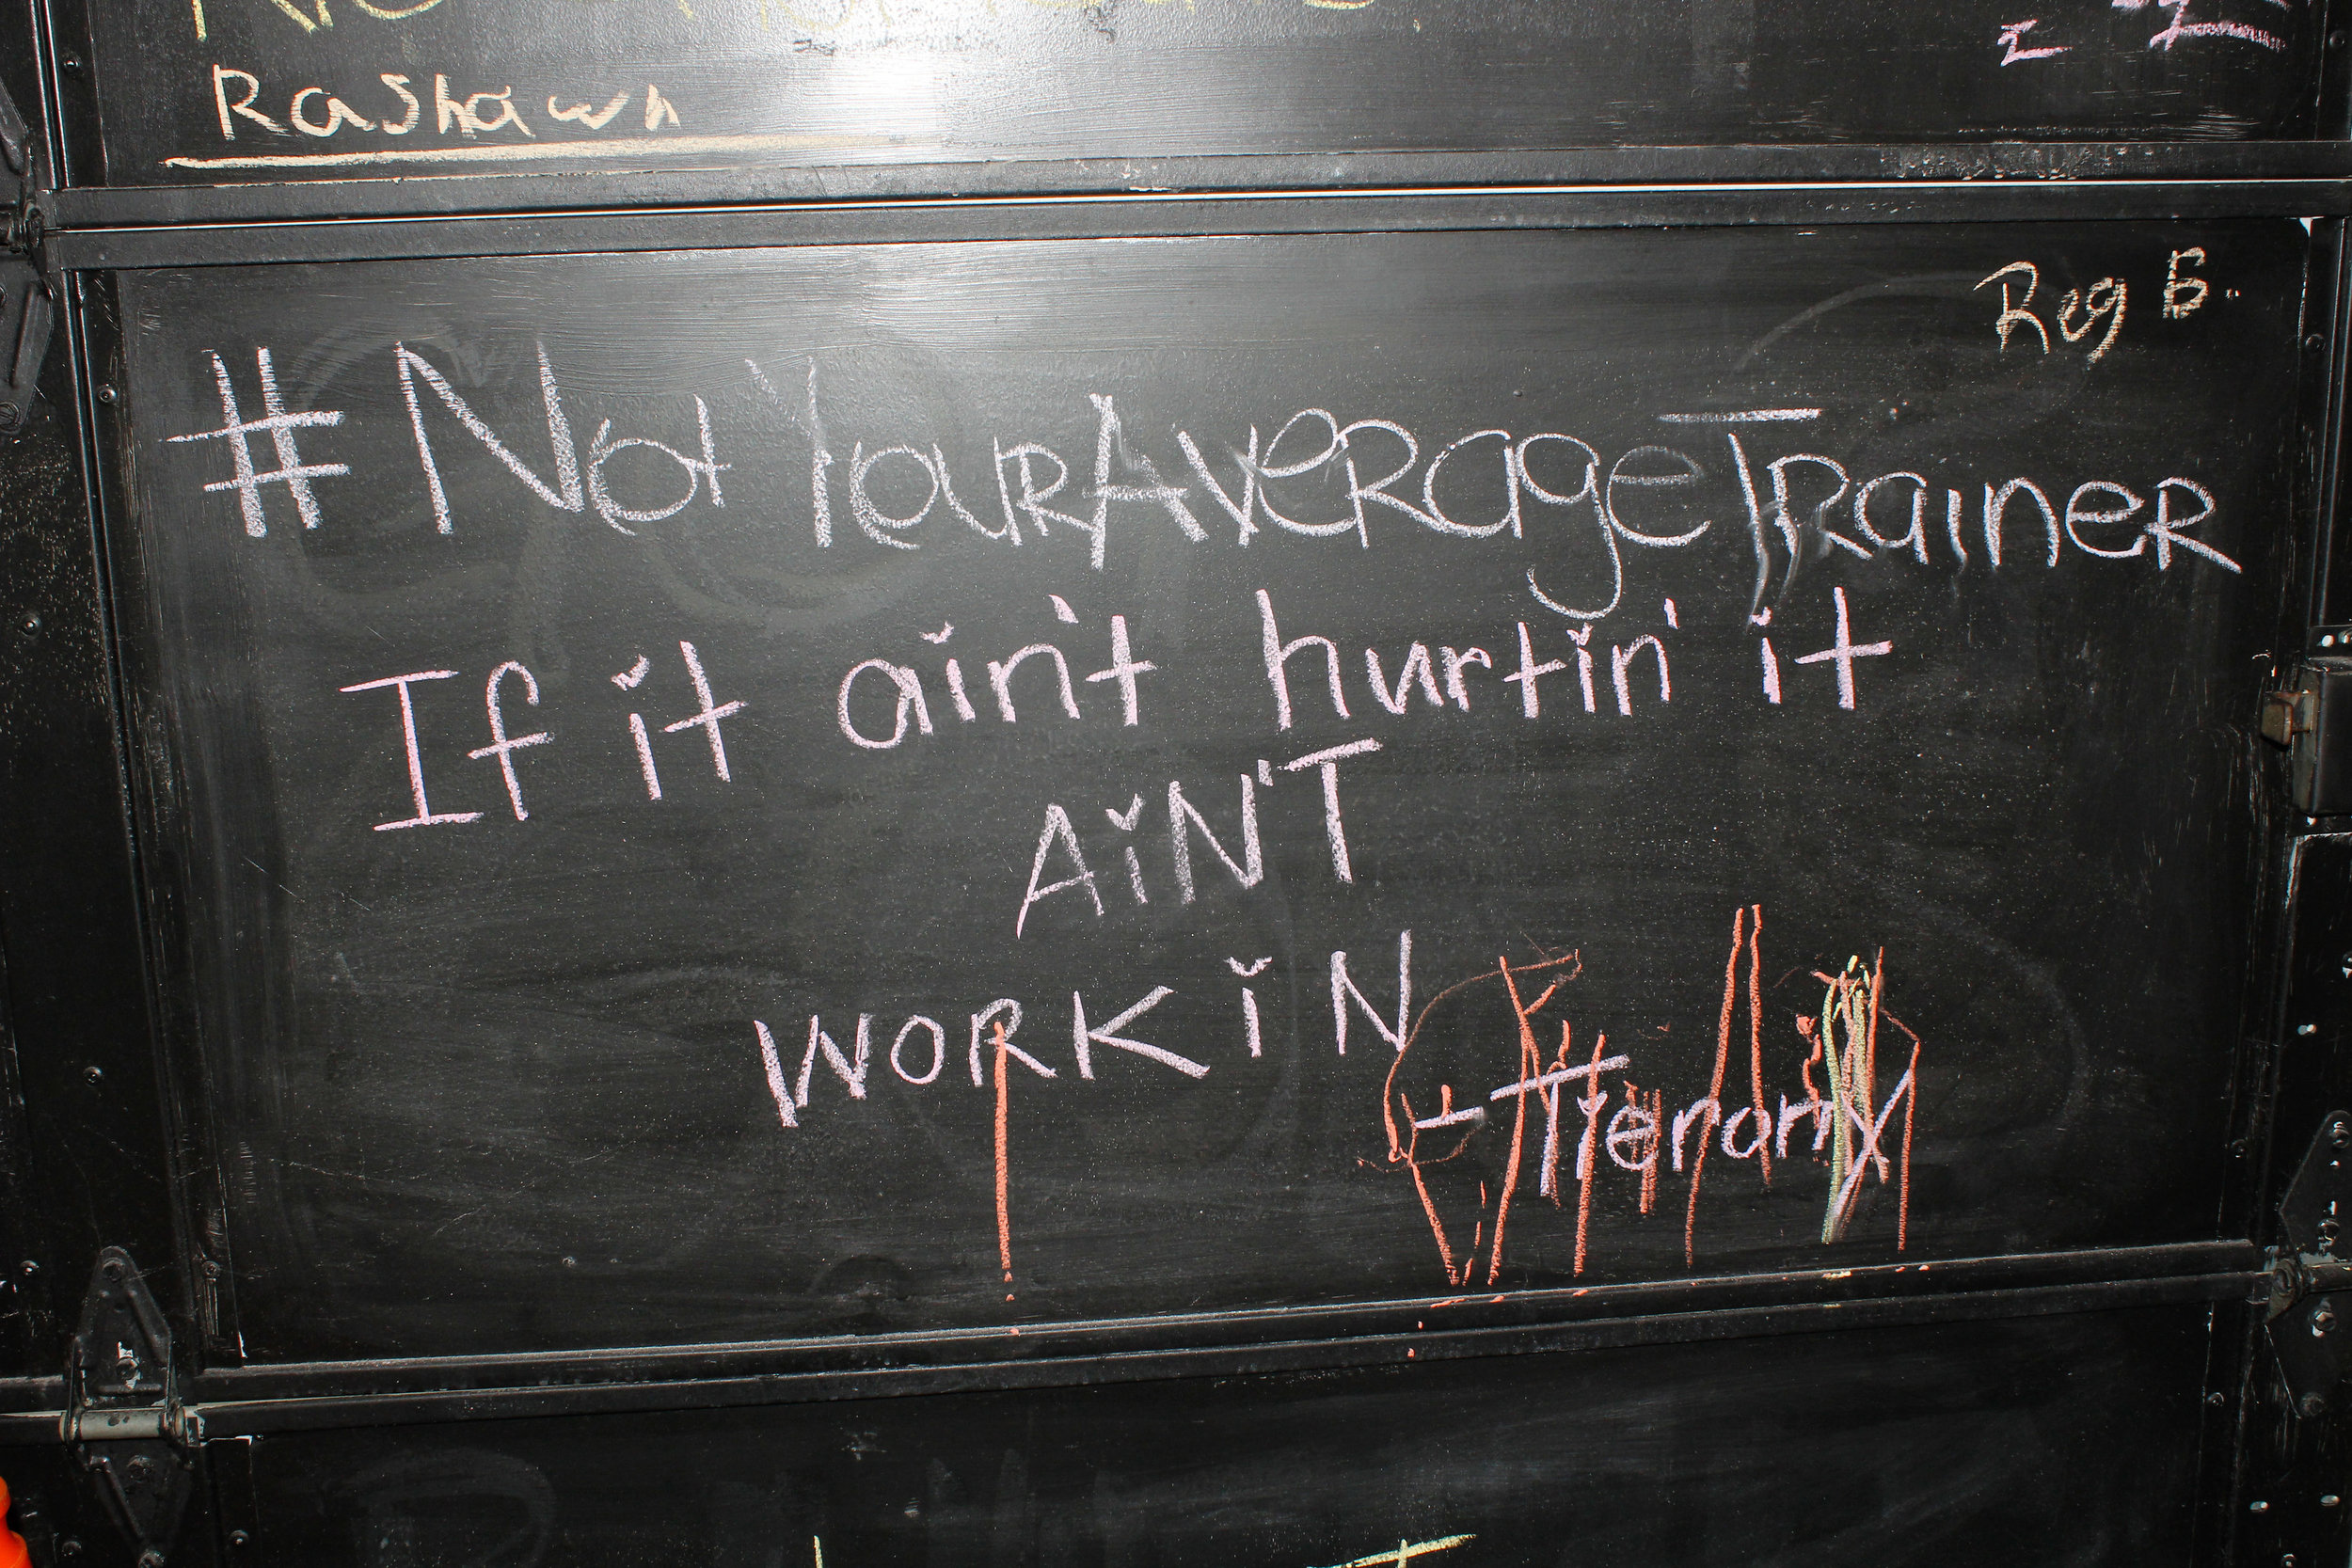 Rashawn
Reg B.
#NotYourAverageTrainer
If it ain't hurtin' it
AiN'T
WORKiN